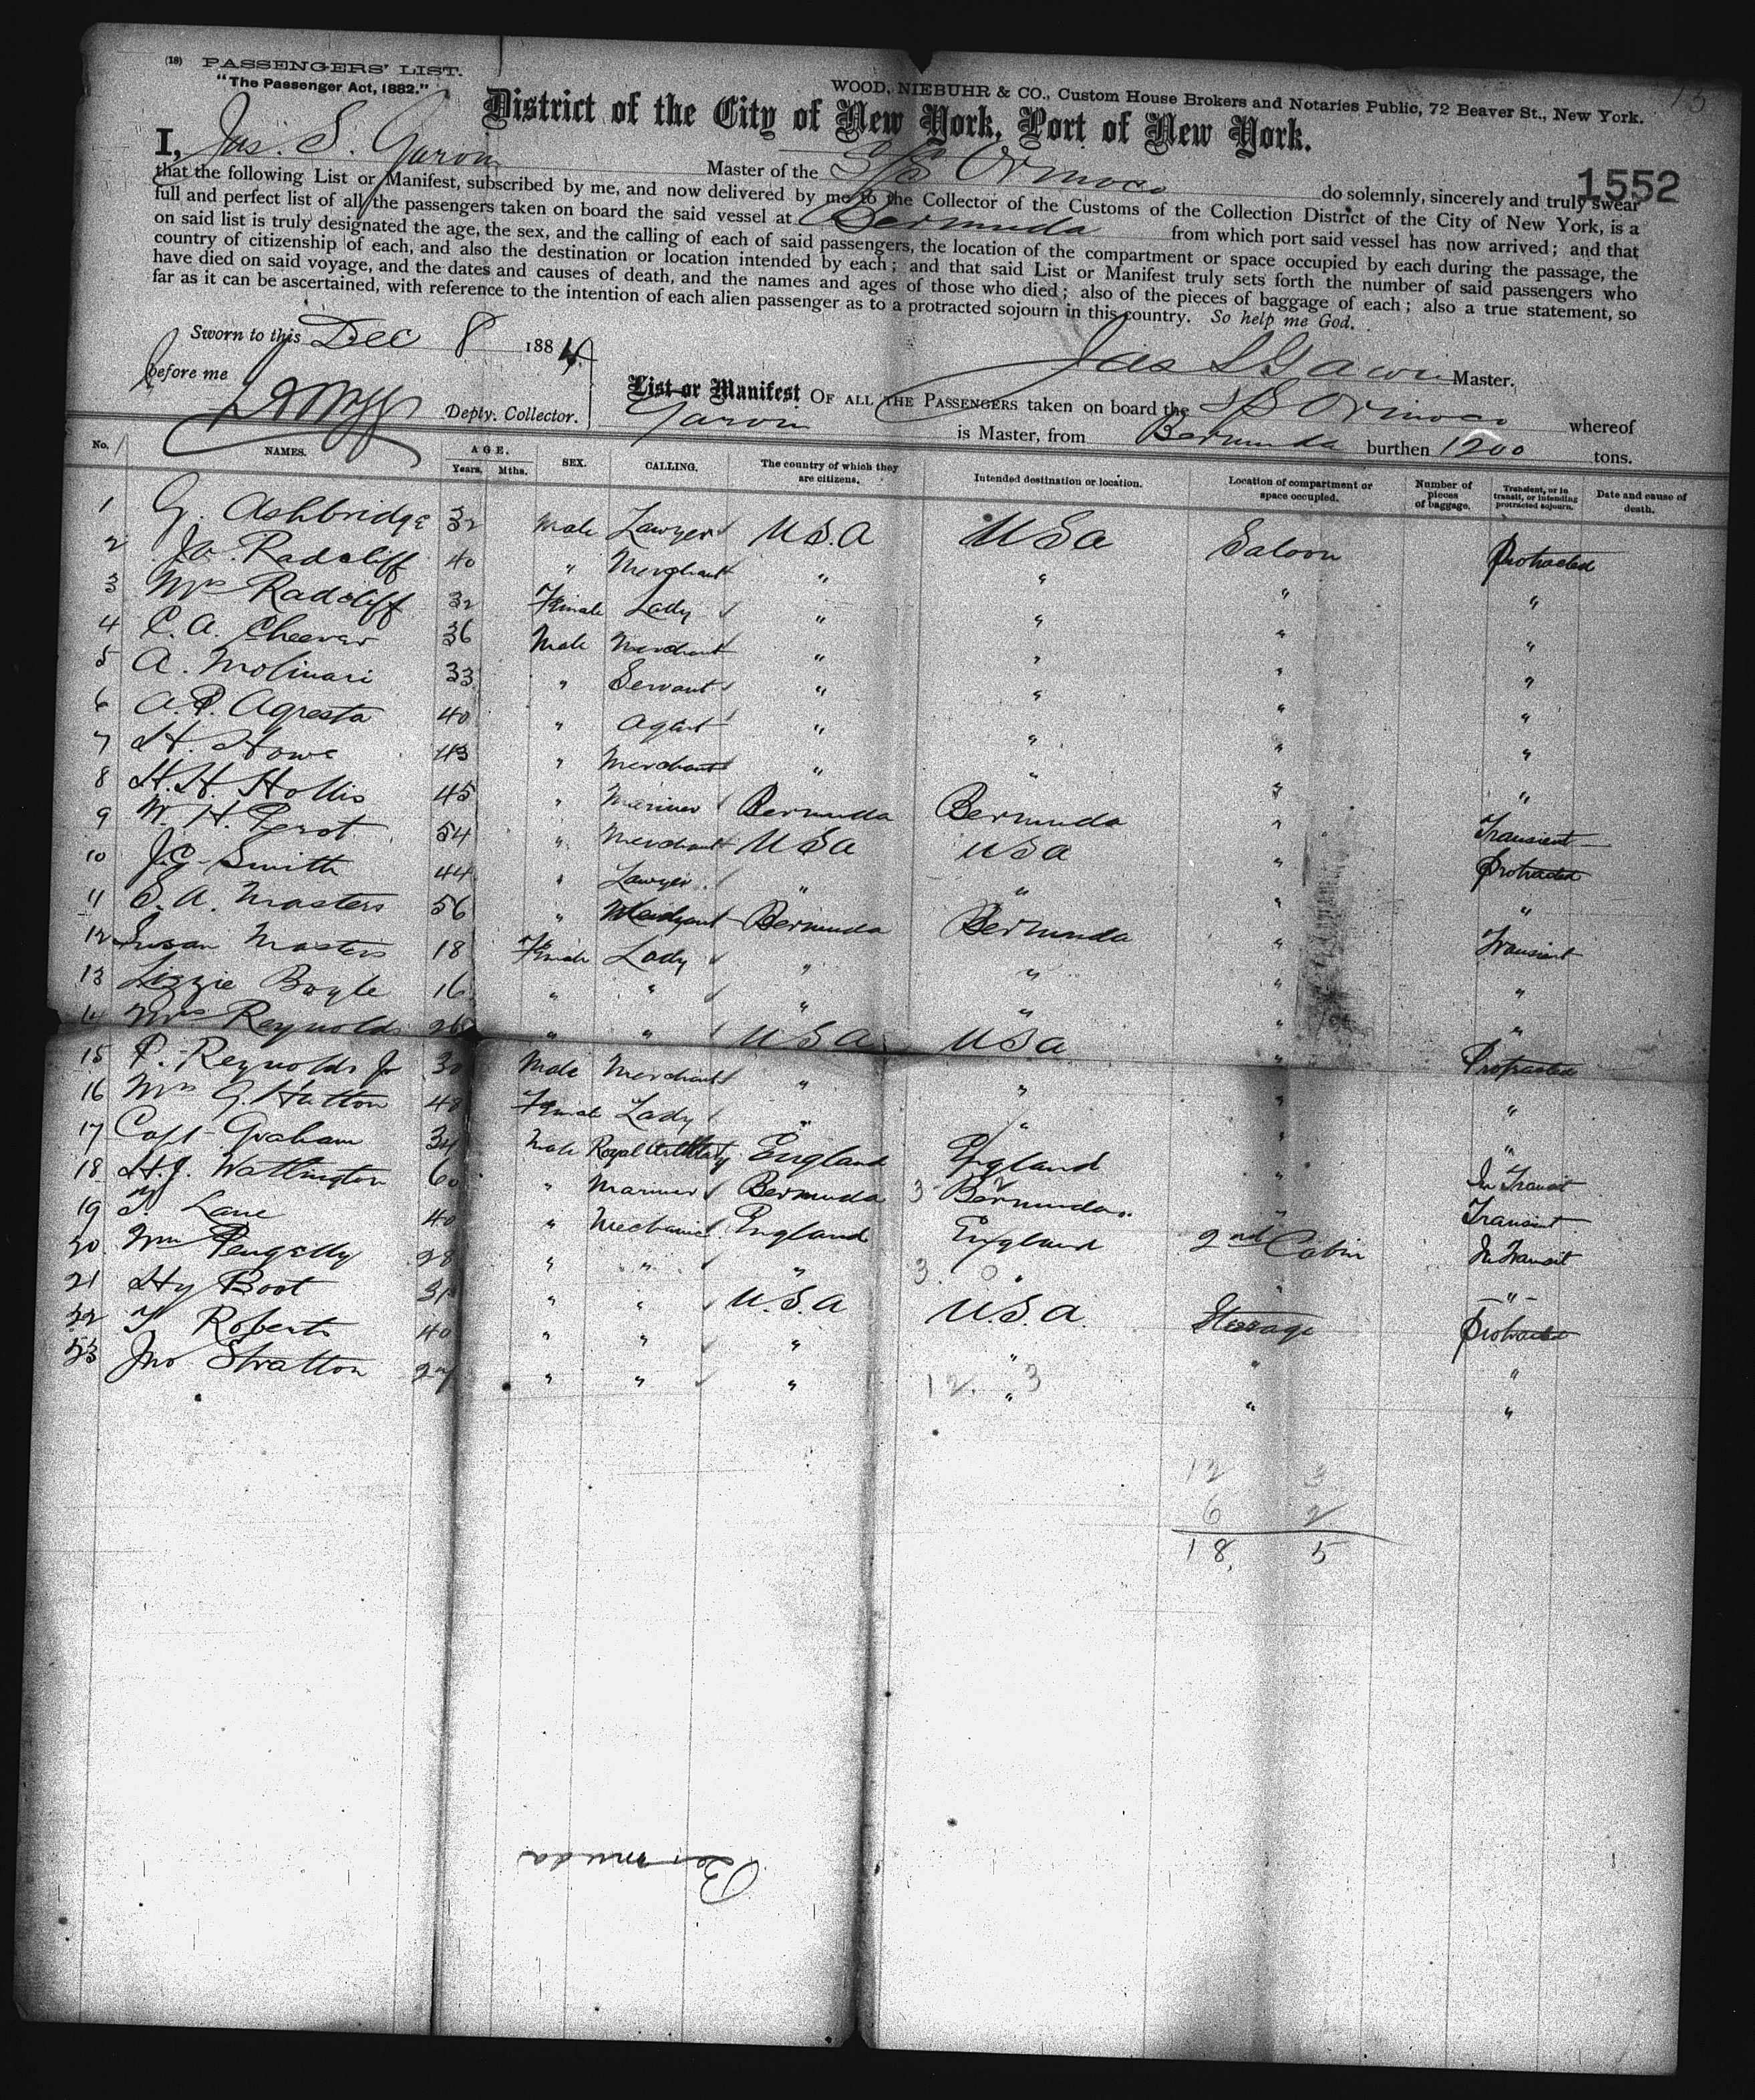 (18) PASSENGERS' LIST. 13
"The Passenger Act, 1882."
WOOD, NIEBUHR & CO., Custom House Brokers and Notaries Public, 72 Beaver St., New York.
District of the City of New York, Port of New York.
1552
I, Jas. S. Garvin Master of the S/S Orinoco do solemnly, sincerely and truly swear
that the following List or Manifest, subscribed by me, and now delivered by me to the Collector of the Customs of the Collection District of the City of New York, is a
full and perfect list of all the passengers taken on board the said vessel at Bermuda from which port said vessel has now arrived; and that
on said list is truly designated the age, the sex, and the calling of each of said passengers, the location of the compartment or space occupied by each during the passage, the
country of citizenship of each, and also the destination or location intended by each; and that said List or Manifest truly sets forth the number of said passengers who
have died on said voyage, and the dates and causes of death, and the names and ages of those who died; also of the pieces of baggage of each; also a true statement, so
far as it can be ascertained, with reference to the intention of each alien passenger as to a protracted sojourn in this country. So help me God.
Sworn to this Dec 8 1884
Jas S Garvin Master.
before me Depty. Collector.
List or Manifest OF ALL THE PASSENGERS taken on board the S/S Orinoco whereof
Garvin is Master, from Bermuda burthen 1200 tons.
No. NAMES. AGE. Years. Mths. SEX. CALLING. The country of which they are citizens. Intended destination or location. Location of compartment or space occupied. Number of pieces of baggage. Transient, or in transit, or intending protracted sojourn. Date and cause of death.
1 G. Ashbridge 32 Male Lawyer U.S.A USA Saloon Protracted
2 Jo Radcliff 40 " Merchant " " " "
3 Mrs Radcliff 32 Female Lady " " " "
4 C. A. Cheever 36 Male Merchant " " " "
5 A. Molinari 33 " Servant " " " "
6 A. P. Agresta 40 " Agent " " " "
7 H. Howe 43 " Merchant " " " "
8 H. H. Hollis 45 " Mariner Bermuda Bermuda " Transient
9 W. H. Perot 54 " Merchant USA USA " Protracted
10 J.G. Smith 44 " Lawyer " " " "
11 S. A. Masters 56 " Merchant Bermuda Bermuda " Transient
12 Susan Masters 18 Female Lady " " " "
13 Lizzie Boyle 16 " " " " " "
14 Mrs Reynolds 26 " " USA USA " Protracted
15 P. Reynolds Jr 30 Male Merchant " " " "
16 Mrs G. Hutton 48 Female Lady " " " "
17 Capt Graham 34 Male Royal Artillery England England " In Transit
18 H.J. Watlington 60 " Mariner Bermuda 3 Bermuda " Transient
19 T. Lane 40 " Mechanic England England 2nd Cabin In Transit
20 Wm Pengelly 28 " " " 3. 0 " " - " -
21 Hy Boot 31 " " U.S.A U.S.A. Steerage Protracted
22 T. Roberts 40 " " " " " "
23 Jno Stratton 27 " " " 12. " 3 " "
12 3
6 2
18, 5
Bermuda